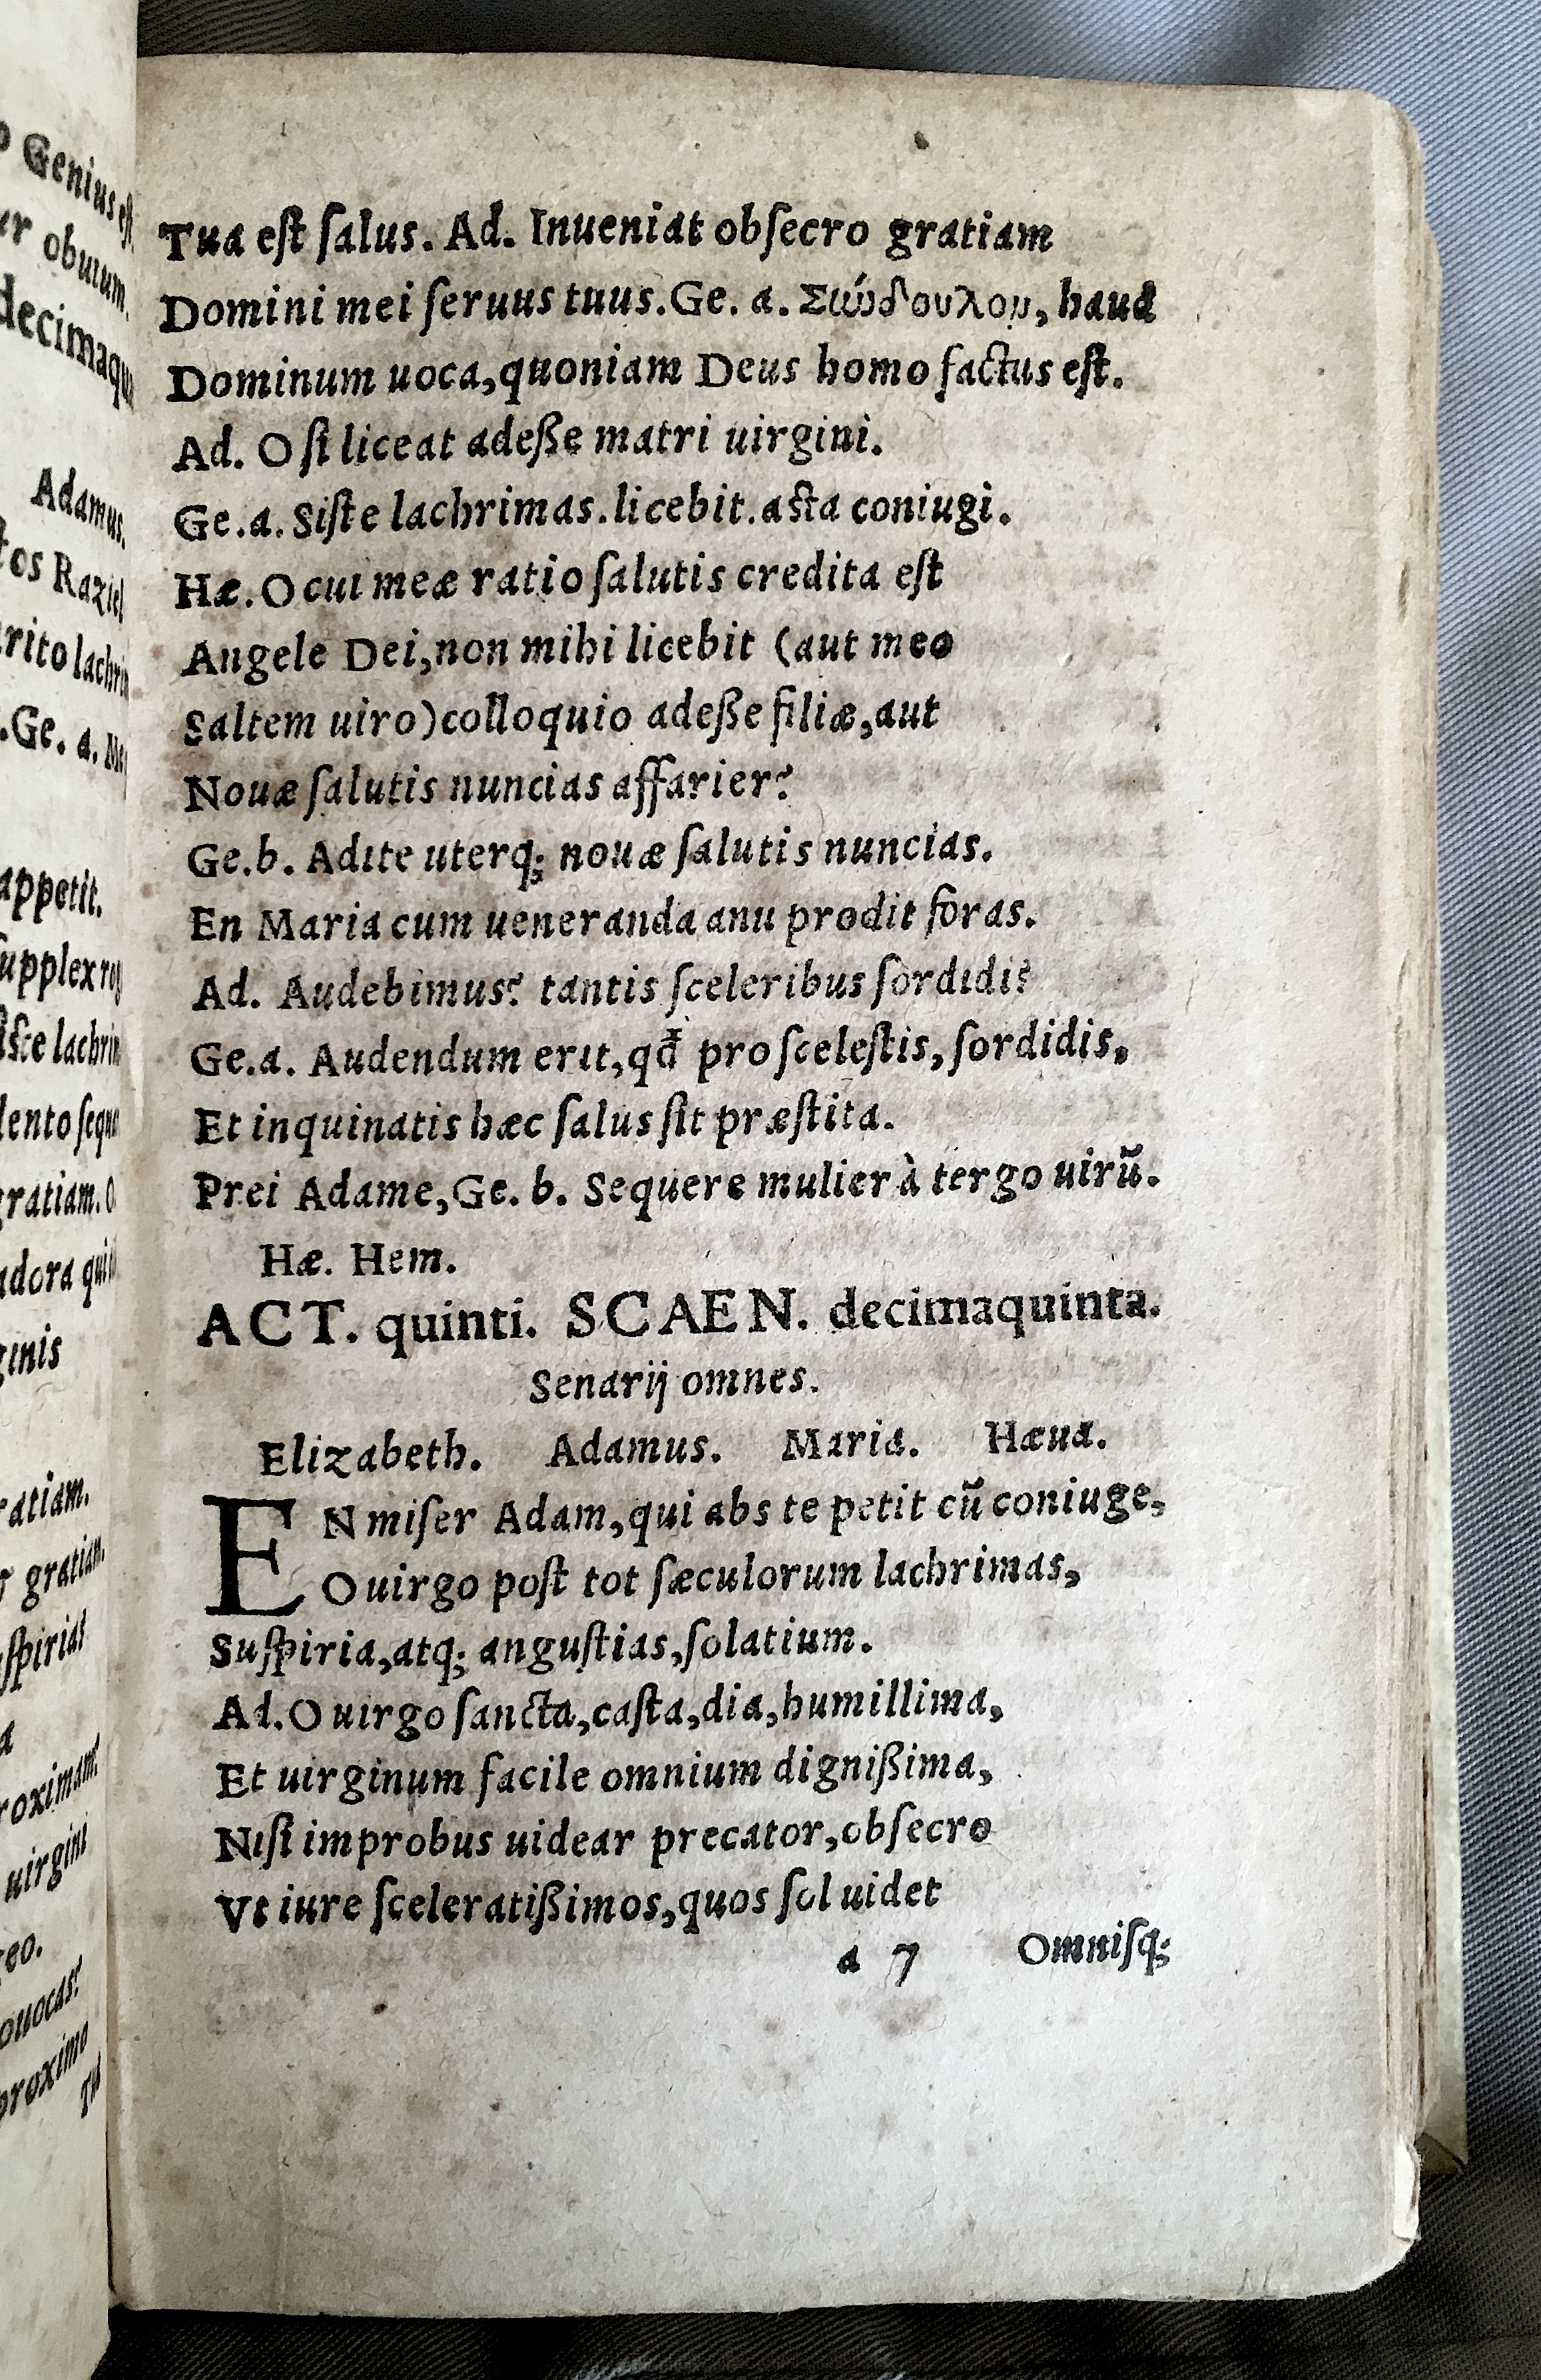 Tua eſt ſalus. Ad. Inueniat obſecro gratiam
Domini mei ſeruus tuus. Ge. a. Σιώδουλομ, haud
Dominum uoca, quoniam Deus homo factus eſt.
Ad. O ſi liceat adeße matri uirgini.
Ge. a. Siſte lachrimas. licebit. aſta coniugi.
Hæ. O cui meæ ratio ſalutis credita eſt
Angele Dei, non mihi licebit (aut meo
Saltem uiro) colloquio adeße filiæ, aut
Nouæ ſalutis nuncias affarier?
Ge. b. Adite uterq; nouæ ſalutis nuncias.
En Maria cum ueneranda anu prodit foras.
Ad. Audebimus? tantis ſceleribus ſordidi?
Ge. a. Audendum erit, qđ pro ſceleſtis, ſordidis,
Et inquinatis hæc ſalus ſit præſtita.
Prei Adame, Ge. b. Sequere mulier à tergo uirũ.
Hæ. Hem.
ACT. quinti. SCAEN. decimaquinta.
Senarij omnes.
Elizabeth. Adamus. Maria. Hæua.
EN miſer Adam, qui abs te petit cũ coniuge,
O uirgo poſt tot ſæculorum lachrimas,
Suſpiria, atq; anguſtias, ſolatium.
Ad. O uirgo ſancta, caſta, dia, humillima,
Et uirginum facile omnium dignißima,
Niſi improbus uidear precator, obſecro
Vt iure ſceleratißimos, quos ſol uidet
a 7 Omniſq;
Genius eſt
obuium.
decimaqu
Adamus.
Raziel
lachrim
Ge. a.
appetit.
lachrim
gratiam. O
adora
gratiam.
uirgini
proximo